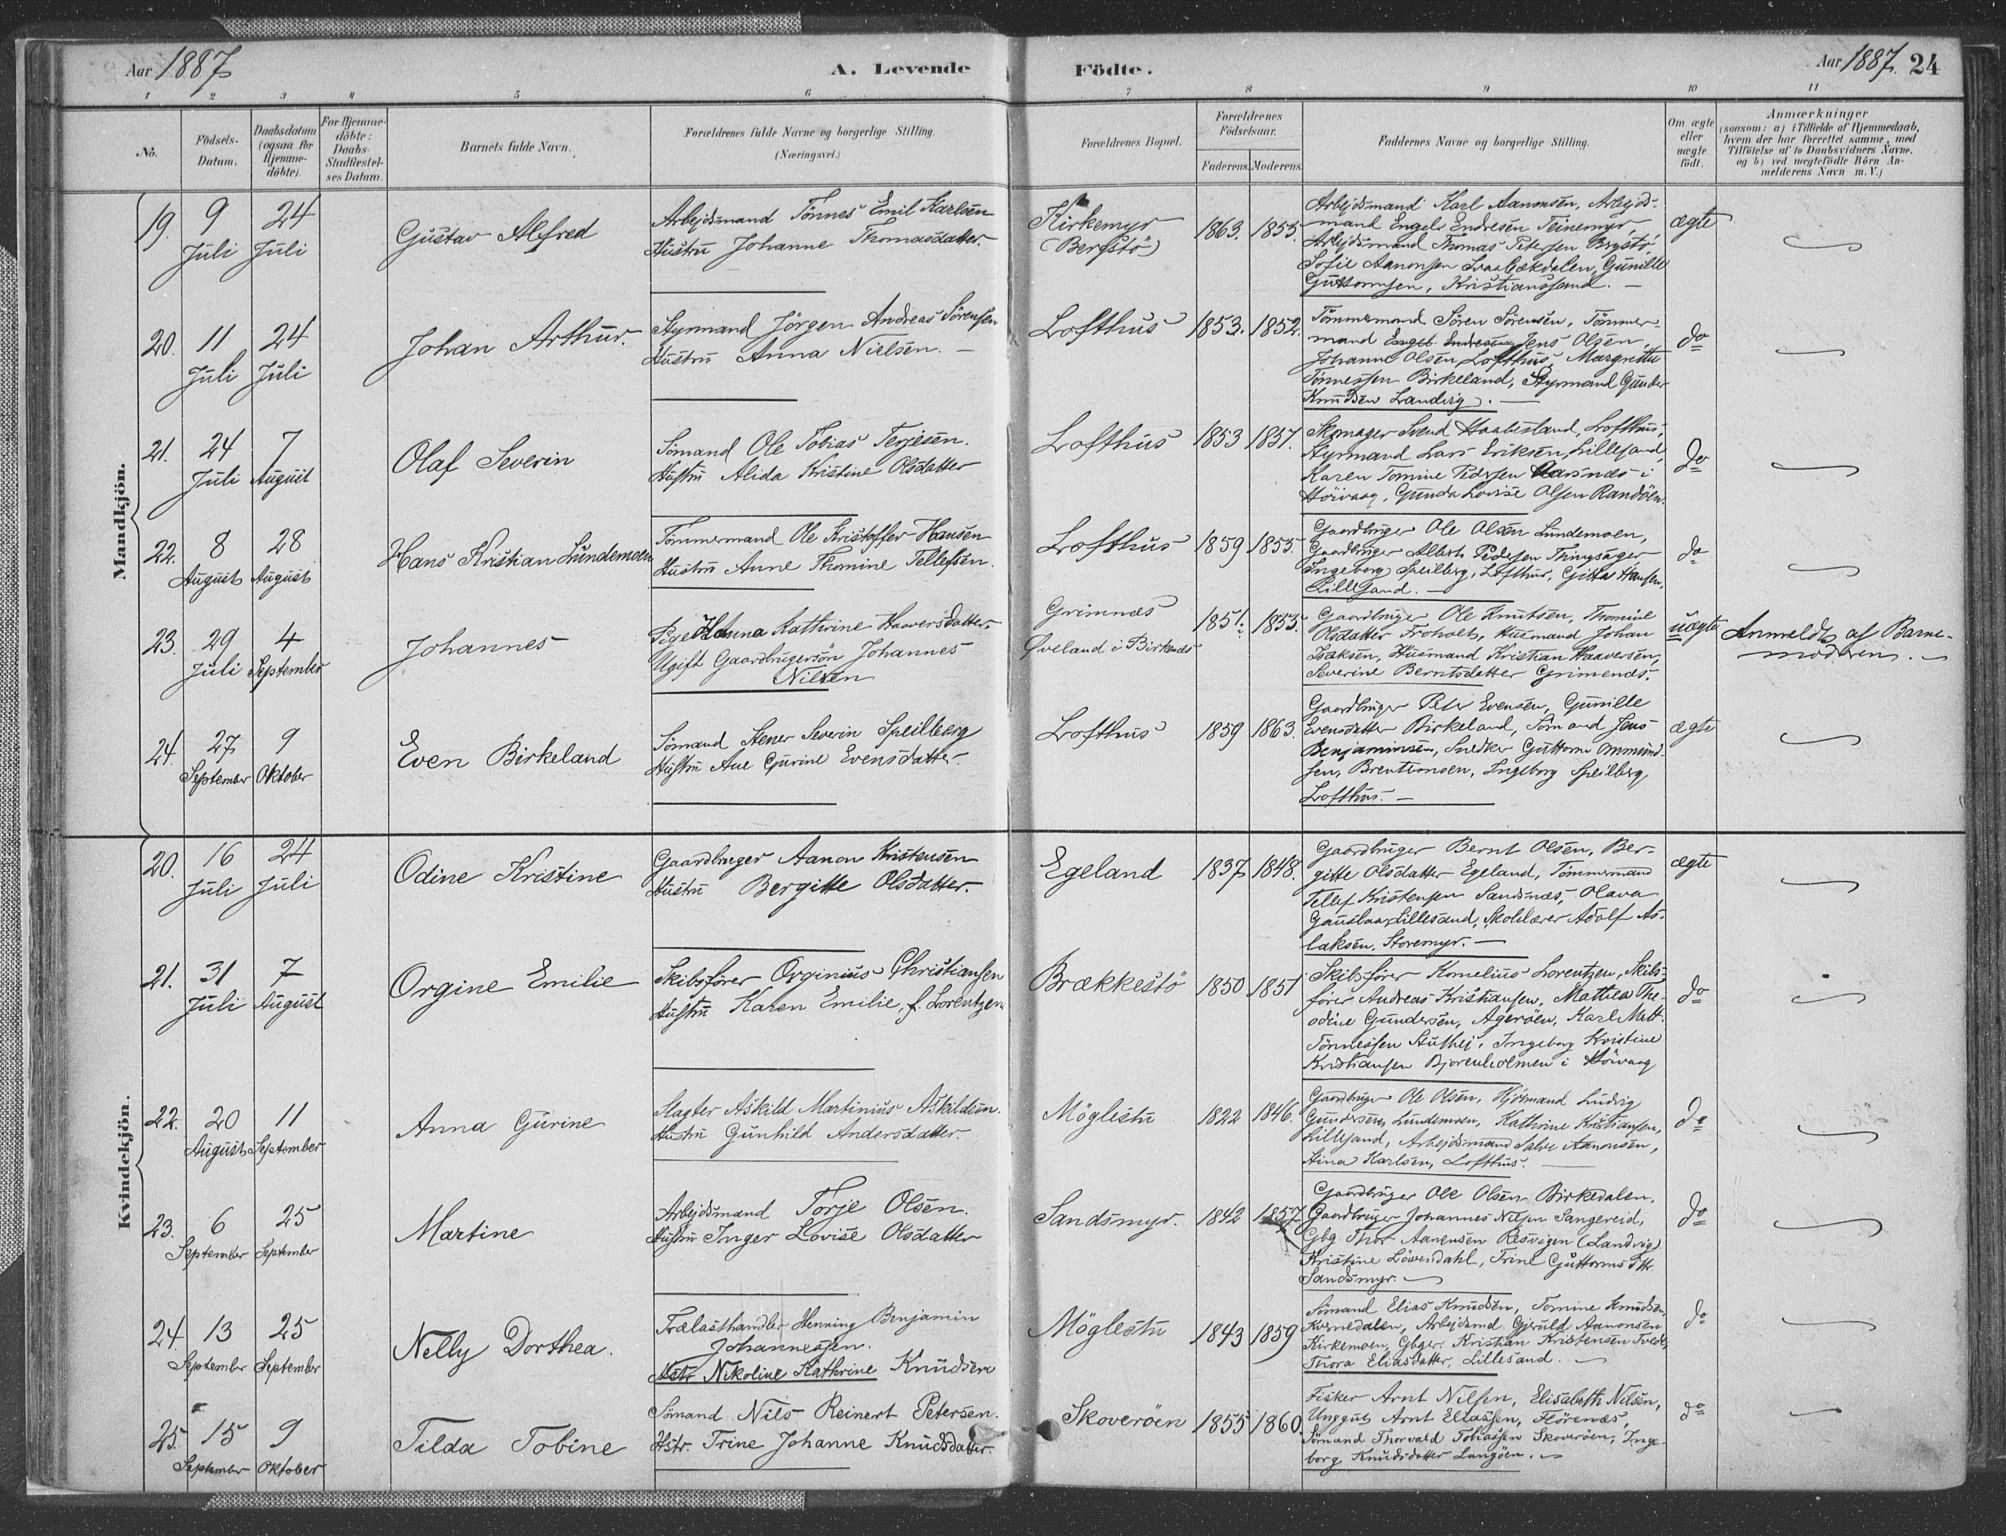 Aar 1887 A. Levende
Födte. Aar 1887. 24
1 2 3 4 5 6 7 8 9 10 11
No.
Födsels-
Datum.
Daabsdatum
(ogsaa for
Hjemme-
döbte).
For Hjemme-
döbte:
Daabs-
Stadfæstel-
ses Datum.
Barnets fulde Navn.
Forældrenes fulde Navne og borgerlige Stilling.
(Næringsvei.)
Forældrenes Bopæl.
Forældrenes
Födselsaar.
Faderens. Moderens.
Faddernes Navne og borgerlige Stilling.
Om ægte
eller
uægte
födt.
Anmærkninger
(saasom: a) i Tilfælde af Hjemmedaab,
hvem der har forrettet samme, med
Tilföielse af to Daabsvidners Navne.
og b) ved uægtefödte Börn An-
melderens Navn m.V.)
Mandkjön.
19. 9 Juli 24 Juli
Gustav Alfred
Arbejdsmand Tönnes Emil Karlsen
Hustru Johanne Thomasdatter.
Kirkemyr
(Bergstö)
1863. 1855.
Arbejdsmand Karl Aanonsen, Arbejds-
mand Engels Endresen Teinemyr,
Arbejdsmand Thomas Petersen Bergstö
Sofie Aanonsen Svaabækdalen, Gunille
Guttormsen, Kristianssand. —
ægte
20. 11 Juli 24 Juli
Johan Arthur.
Styrmand Jörgen Andreas Sörensen
Hustru Anna Nielsen. —
Lofthus
1853. 1852.
Tömmermand Sören Sörensen, Tömmer-
mand Jens Olsen,
Johanne Olsen Lofthus, Margrethe
Tönnessen Birkeland, Styrmand Gunder
Knudsen Landvig. —
do
21. 24 Juli 7 August
Olaf Severin
Sömand Ole Tobias Terjesen.
Hustru Alida Kristine Olsdatter
Lofthus
1853 1857.
Skomager Svend Haabesland, Lofthus,
Styrmand Lars Eriksen, Lillesand
Karen Tomine Pedersen Aarsnæs i
Höivaag, Gunda Lovise Olsen Randöen.
do
22. 8 August 28 August
Hans Kristian Lundemoen
Tömmermand Ole Kristoffer Hansen
Hustru Anne Thomine Tellefsen.
Lofthus
1859 1855.
Gaardbruger Ole Olsen Lundemoen,
Gaardbruger Albert Pedersen Tingsager
Ingeborg Speilberg, Lofthus, Gitta Hansen,
Lillesand. —
do
23. 29 Juli 4 September
Johannes
Pige Hanna Kathrine Haaversdatter
Ugift Gaardbrugersön Johannes
Nilsen
Grimnæs
Öveland i Birkenæs
1851. 1855.
Gaardbruger Ole Knutsen, Thomine
Olsdatter Froholt, Husmand Johan
Isaksen, Husmand Kristian Haaversen,
Severine Berntsdatter Grimenæs.
uægte
Anmeldt af Barne-
moderen.
24. 27 September 9 Oktober
Even Birkeland
Sömand Stener Severin Speilberg
Hustru Ane Gurine Evensdatter
Lofthus
1859 1863.
Gaardbruger Peter Evensen, Gunille
Evensdatter Birkeland, Sömand Jens
Benjaminsen, Snedker Guttorm Ommund-
sen, Brentemoen, Ingeborg Speilberg,
Lofthus. —
ægte
Kvindekjön.
20. 16 Juli 24 Juli
Odine Kristine
Gaardbruger Aanon Kristensen
Hustru Bergitte Olsdatter.
Egeland
1837 1848.
Gaardbruger Bernt Olsen, Ber-
gitte Olsdatter Egeland, Tömmermand
Tellef Kristensen Sandsnæs, Olava
Gauslaa, Lillesand, Skolelærer Adolf As-
laksen, Storemyr. —
ægte
21. 31 Juli 7 August
Orgine Emilie
Skibsförer Orginius Christiansen
Hustru Karen Emilie, f. Lorentzen
Brækkestö
1850 1851
Skibsförer Kornelius Lorentzen, Skibs-
förer Andreas Kristiansen, Mathea The-
odine Gundersen, Ageröen, Karl Matt.
Tönnessen Authei, Ingeborg Kristine
Kristiansen Bjorenholmen i Höivaag
do
22. 20 August 11 September
Anna Gurine
Slagter Askild Martinius Askildsen.
Hustru Gunhild Andersdatter.
Möglestu
1822 1846.
Gaardbruger Ole Olsen, Hjólmand Ludvig
Gundersen, Lundemoen, Kathrine Kristiansen,
Lillesand, Arbejdsmand Salve Aanonsen,
Stina Karlsen, Lofthus.
do
23. 6 September 25 September
Martine
Arbejdsmand Torje Olsen.
Hustru Inger Lovise Olsdatter
Sandsmyr.
1842 1857
Gaardbruger Ole Olsen Birkedalen,
Gaardbruger Johannes Nilsen Sangereid,
Gbg Thor Aanensen Resvigen (Landvig)
Kristine Lövendahl, Trine Guttormsdtr.
Sandsmyr.
do
24. 13 September 25 September
Nelly Dorthea.
Trælasthandler Henning Benjamin
Johannessen.
Hstr. Nikoline Kathrine Knudsen
Möglestu
1843 1859
Sömand Elias Knudsen, Tomine Knudsen,
Kvernedalen, Arbejdsmd Gjeruld Aanonsen
Kirkemoen, Gbger. Kristian Kristensen Tvede,
Thora Eliasdatter, Lillesand.
do
25. 15 September 9 Oktober
Tilda Tobine
Sömand Nils Reinert Petersen.
Hstr. Trine Johanne Knudsdatter.
Skoveröen
1855 1860.
Fisker Arnt Nilsen, Elisabeth Nilsen,
Unggut Arnt Eliassen, Flörenæs,
Sömand Thorvald Tobiassen Skoveröen, Inge-
borg Knudsdatter Langöen.
do